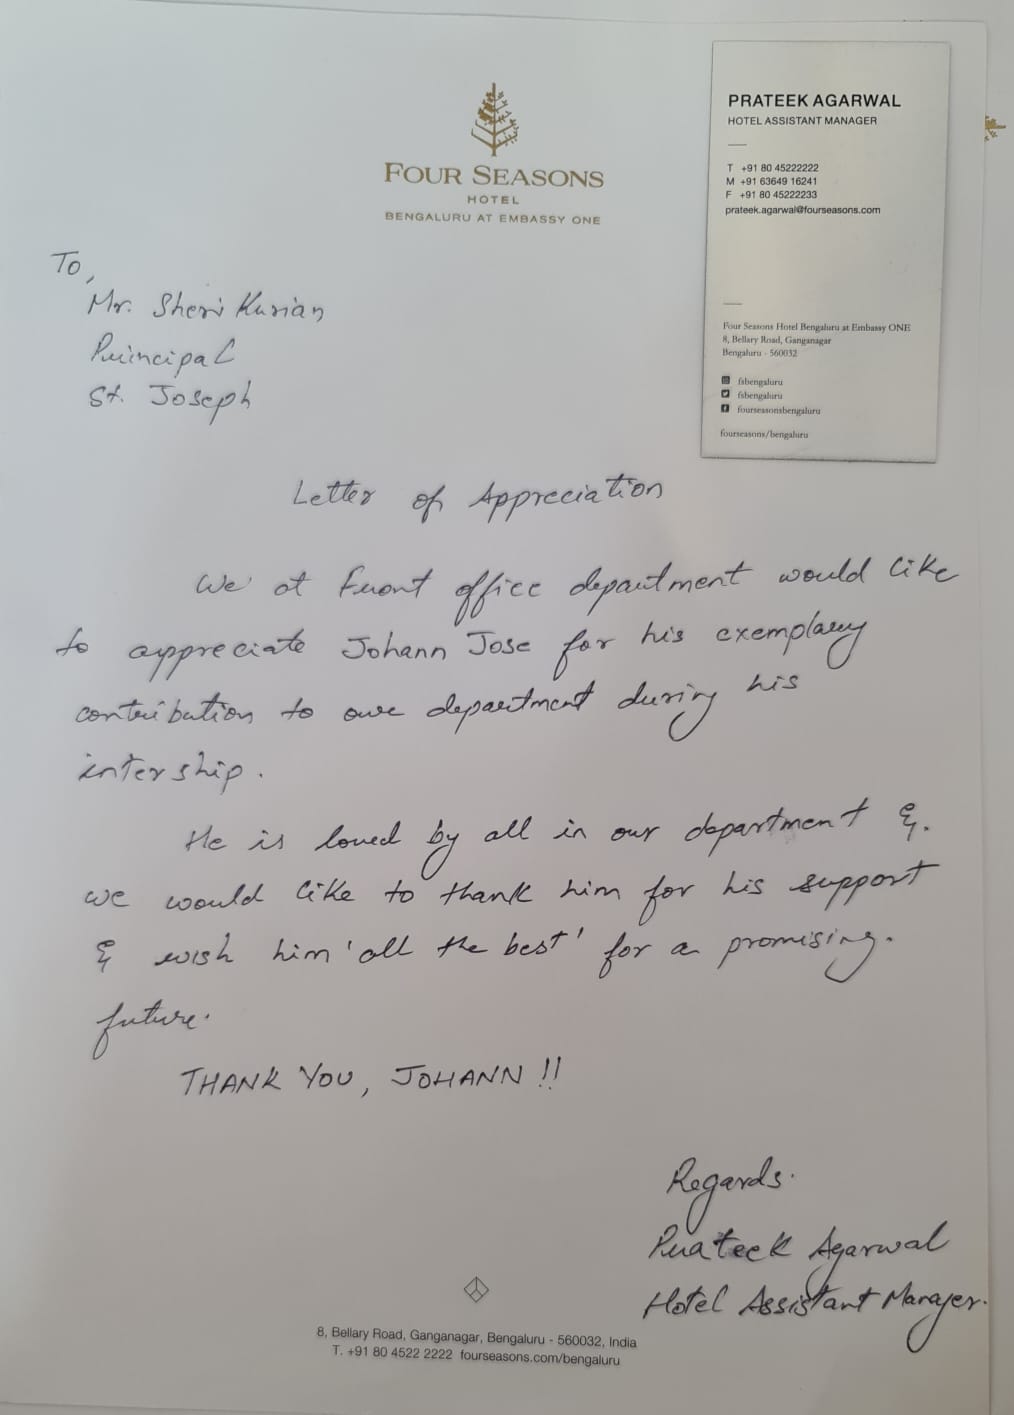 FOUR SEASONS
HOTEL
BENGALURU AT EMBASSY ONE
PRATEEK AGARWAL
HOTEL ASSISTANT MANAGER
T +91 80 45222222
M +91 63649 16241
F +91 80 45222233
prateek.agarwal@fourseasons.com
Four Seasons Hotel Bengaluru at Embassy ONE
8, Bellary Road, Ganganagar
Bengaluru - 560032
fsbengaluru
fsbengaluru
fourseasonsbengaluru
fourseasons/bengaluru
To,
Mr. Sheri Kurian
Principal
St. Joseph
Letter of Appreciation
We at Front office department would like
to appreciate Johann Jose for his exemplary
contribution to our department during his
intership.
He is loved by all in our department &
we would like to thank him for his support
& wish him 'all the best' for a promising.
future.
THANK YOU, JOHANN !!
Regards.
Prateek Agarwal
Hotel Assistant Manager.
8, Bellary Road, Ganganagar, Bengaluru - 560032, India
T. +91 80 4522 2222 fourseasons.com/bengaluru